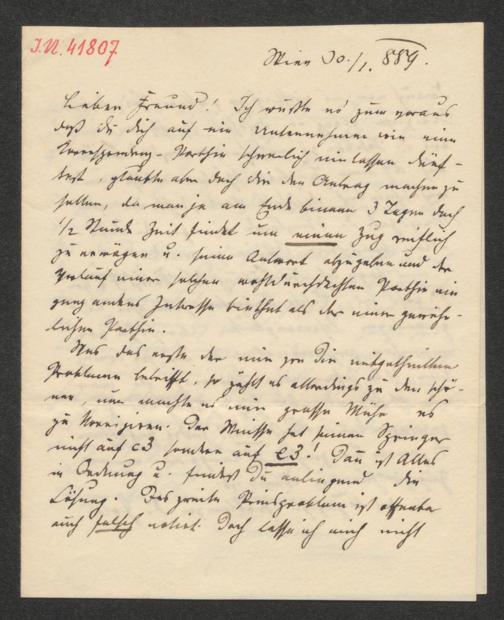 I.N. 41807
Wien 30./1. 889.
Lieben Freund! Ich wußte es zum voraus
daß du dich auf ein Unternehmen wie eine
Correspondenz-Parthie schwerlich einlassen dürf-
test, glaubte aber doch dir den Antrag machen zu
sollen, da man ja am Ende binnen 3 Tagen doch
1/2 Stunde Zeit findet um einen Zug reiflich
zu erwägen u. seine Antwort abzugeben und der
Verlauf einer solchen wohldurchdachten Parthie ein
ganz anderes Interesse biethet als der einer gewöhn-
lichen Parthie.
Was das erste der mir von Dir mitgetheilten
Probleme betrifft, so zählt es allerdings zu den schö-
nen, nur machte es mir große Mühe es
zu korrigiren. Der Weisse hat seinen Springer
nicht auf c3 sondern auf e3! Dann ist Alles
in Ordnung u. findest Du anliegend die
Lösung. Das zweite Preisproblem ist offenbar
auch falsch notirt. Doch lasse ich mich nicht